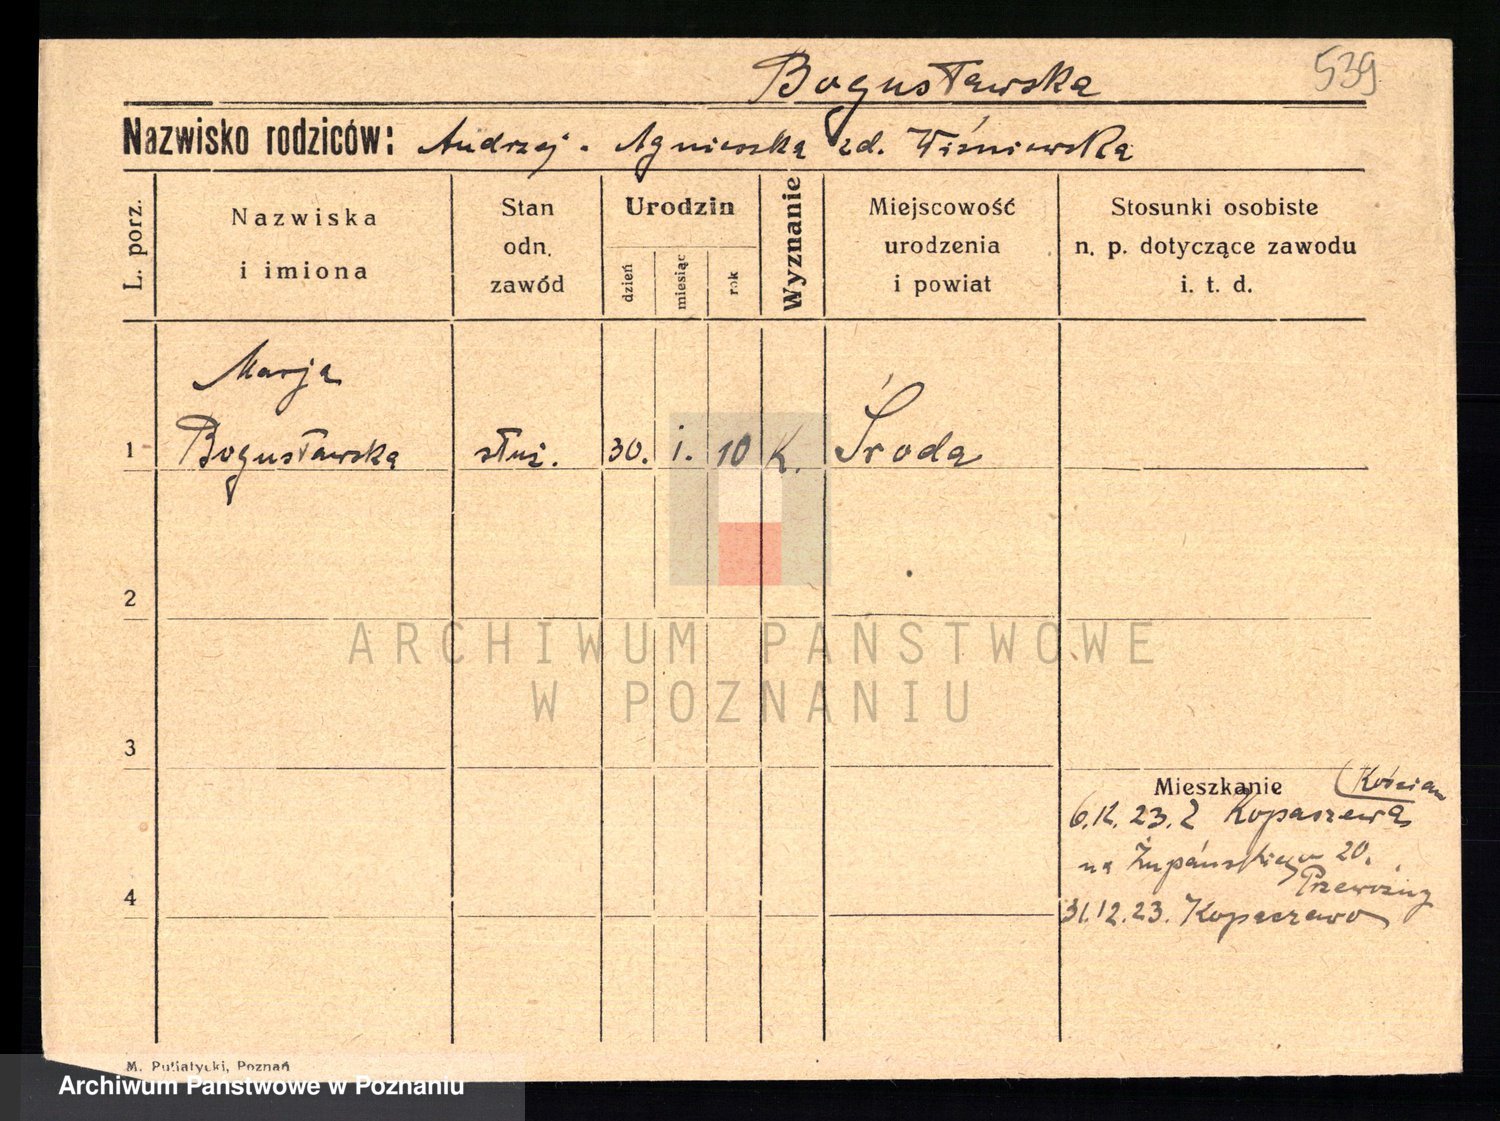 539
Bogusławska
Nazwisko rodziców: Andrzej - Agnieszka zd. Wiśniewska
L. porz.
Nazwiska
i imiona
Stan
odn.
zawód
Urodzin
dzień
miesiąc
rok
Wyznanie
Miejscowość
urodzenia
i powiat
Stosunki osobiste
n. p. dotyczące zawodu
i. t. d.
Marja
1 Bogusławska służ. 30. i. 10 K. Środa
2
ARCHIWUM PAŃSTWOWE
W POZNANIU
3
Mieszkanie Kościan
6.12.23. z Kopaszewa
na Żupańskiego 20.
4
31.12.23. Kopaszewo
M. Putiatycki, Poznań
Archiwum Państwowe w Poznaniu